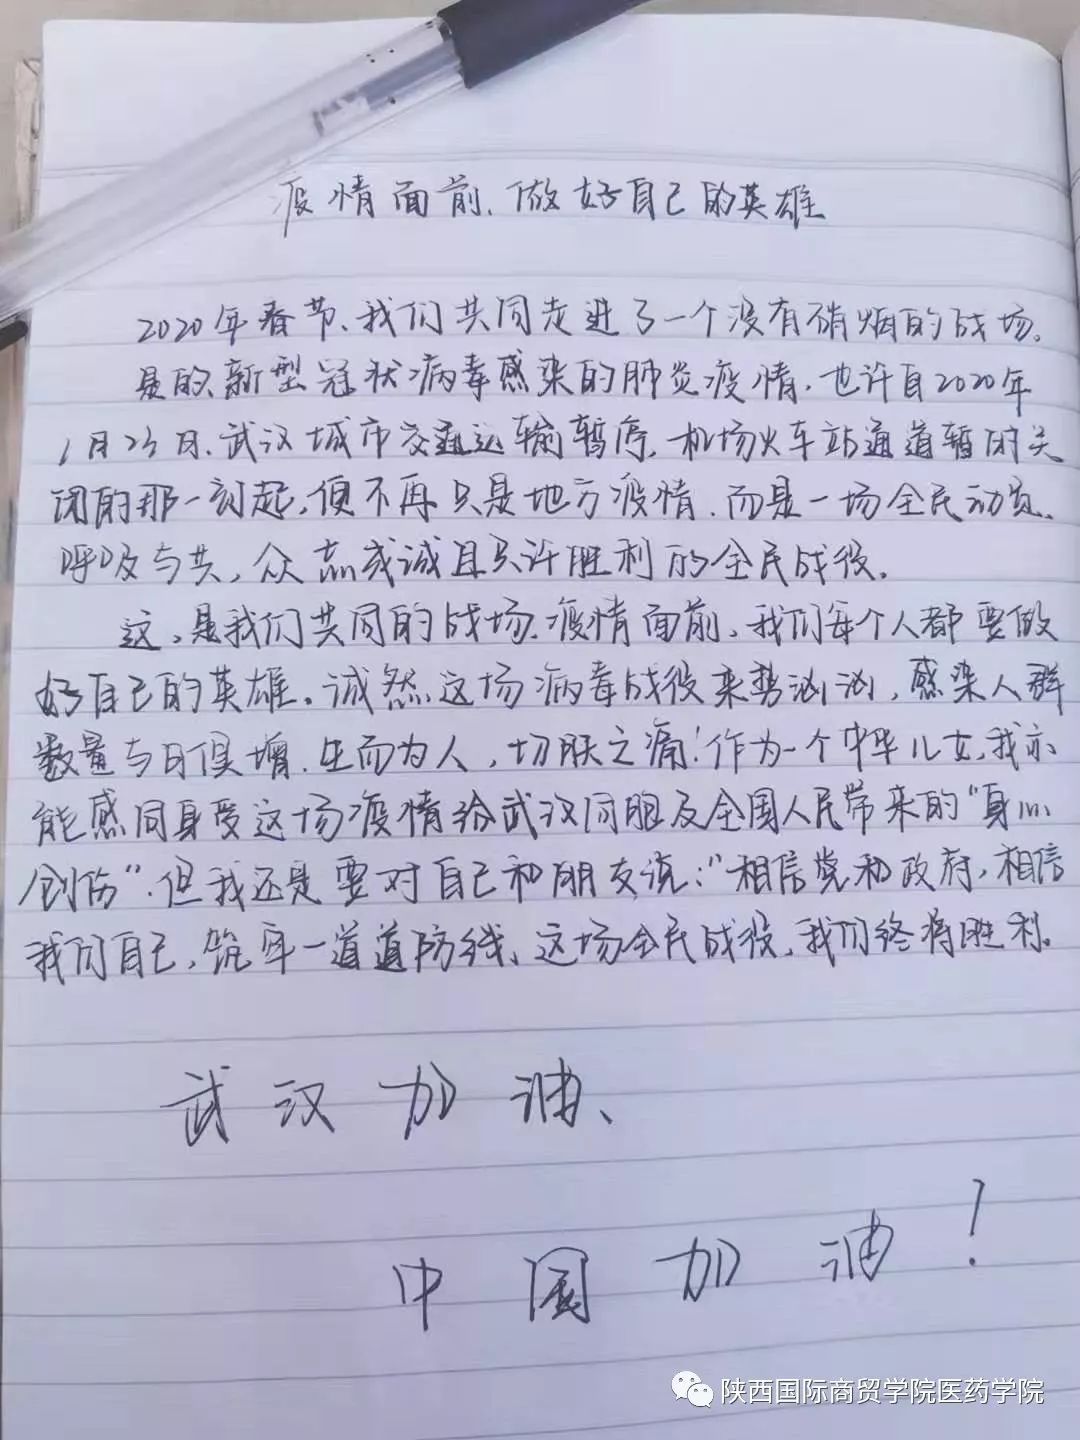 疫情面前、做好自己的英雄
2020年春节、我们共同走进了一个没有硝烟的战场。
是的、新型冠状病毒感染的肺炎疫情、也许自2020年
1月23日、武汉城市交通运输暂停、机场火车站通道暂时关
闭的那一刻起、便不再只是地方疫情、而是一场全民动员、
呼吸与共，众志成诚且只许胜利的全民战役。
这，是我们共同的战场、疫情面前，我们每个人都要做
好自己的英雄。诚然这场病毒战役来势汹汹，感染人群
数量与日俱增、生而为人，切肤之痛！作为一个中华儿女，我亦
能感同身受这场疫情给武汉同胞及全国人民带来的“身心
创伤”、但我还是要对自己和朋友说：“相信党和政府，相信
我们自己，筑牢一道道防线、这场全民战役、我们终将胜利。
武汉加油、
中国加油！
陕西国际商贸学院医药学院